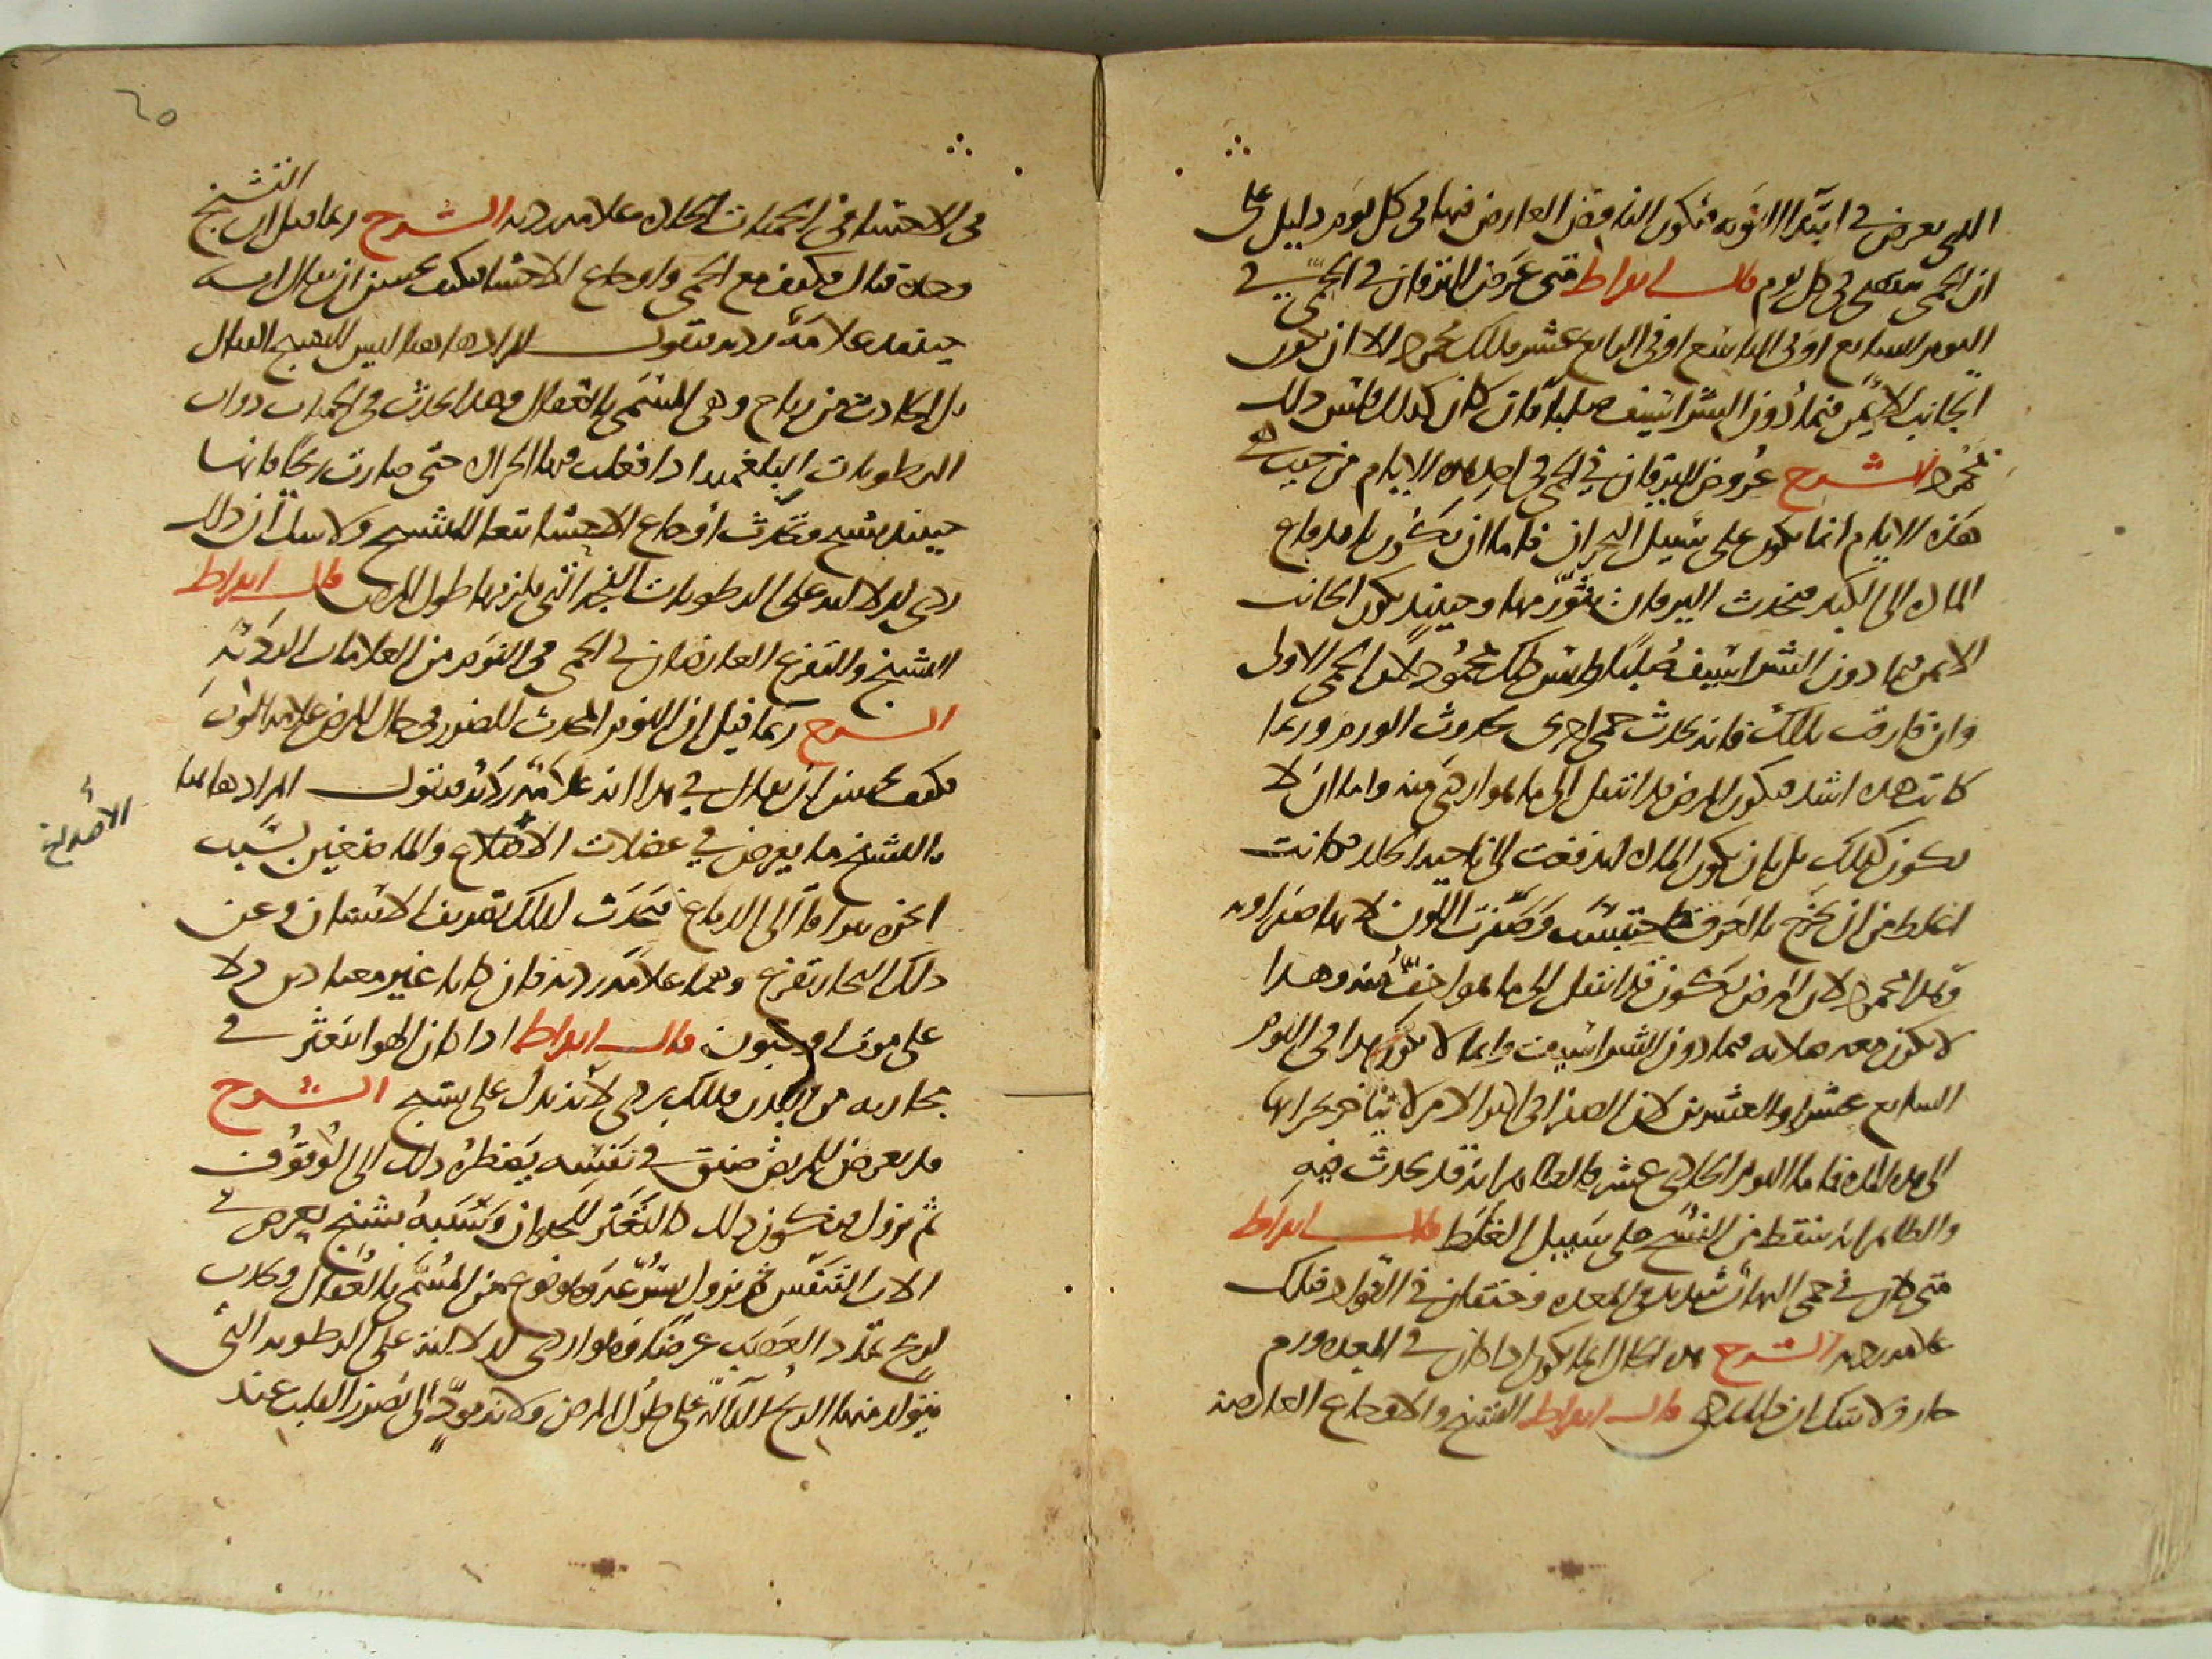 الذي يعرض في ابتداء النوبه فيكون النافض العارض فيها في كل يوم دليل على
ان الحمى تنقضي في كل يوم قال ابقراط متى عرض اليرقان في الحمى في
اليوم السابع او في التاسع او في الرابع عشر فذلك محمود الا ان يكون
الجانب الايمن فيما دون الشراسيف صلبا فان كان كذلك فليس ذلك
بمحمود الشرح عروض اليرقان في الحمى في احد هذه الايام من حيث
هذه الايام انما يكون على سبيل البحران فاما ان يكون باندفاع
المادة الى الكبد فيحدث اليرقان بتورمها وحينئذ يكون الجانب
الايمن فيما دون الشراسيف صلبا وليس ذلك بمحمود لان الحمى الاولى
وان فارقت بذلك فانه يحدث حمى اخرى بحدوث الورم وربما
كانت هذه اشد فيكون المرض قد انتقل الى ما هو اردى منه واما ان لا
يكون كذلك بل بان يكون المادة اندفعت الى ناحية الجلد فكانت
اغلظ من ان تخرج بالعرق فاحتبست وصفرت اللون لانها صفراويه
وهذا محمود لان المرض يكون قد انتقل الى ما هو اخف منه وهذا
لا يكون معه صلابه فيما دون الشراسيف وانما لا يكون هذا في اليوم
السابع عشر او العشرين لان الصفراء في اكثر الامر لا يتاخر بحرانها
الى هذه المدة فاما اليوم الحادي عشر فالظاهر انه قد يحدث فيه
والظاهر انه سقط من النسخ على سبيل الغلط قال ابقراط
متى كان في حمى التهاب شديد في المعدة وخفقان في الفواد فتلك
علامه رديه الشرح هذه الحال انما يكون اذا كان في المعده ورم
حار ولا شك ان ذلك ردي قال ابقراط التشنج والاوجاع العارضه
٦٥
في الاحشاء في الحميات الحاده علامه رديه الشرح ربما قيل ان التشنج
وحده قتال فكيف مع الحمى واوجاع الاحشاء فكيف يحسن ان يقال انه
حينئذ علامة رديه فنقول المراد ها هنا ليس التشنج القتال
بل الحادث من رياح وهي المسمى بالعقال وهذا يحدث في الحميات ذوات
الرطوبات البلغميه اذا فعلت فيها الحراره حتى صارت ريحا فانها
حينئذ تشنج وتحدث اوجاع الاحشاء تبعا للتشنج ولا شك ان ذلك
ردي لدلالته على الرطوبات الفجه التي يلزمها طول المرض قال ابقراط
التشنج والتفزع العارضان في الحمى في النوم من العلامات الرديه
الشرح ربما قيل ان النوم المحدث للضرر في حال المرض علامه الموت
فكيف يحسن ان يقال في هذا انه علامة رديه فنقول المراد هاهنا
بالتشنج ما يعرض في عضلات الاضلاع والماضغين بسبب
ابخره تتراقا الى الدماغ فيحدث لذلك تصريف الاسنان وعن
ذلك البخار تفزع وهما علامه رديه فان كانا غير معتادين دلا
على موت او جنون قال ابقراط اذا كان الهواء يتغير في
مجاريه من البدن فذلك ردي لانه يدل على تشنج الشرح
قد يعرض للمريض ضيق في تنفسه يضطره ذلك الى الوقوف
ثم يزول فيكون ذلك كالتعثر للحيوان وسببه تشنج يعرض في
الات التنفس ثم يزول بسرعه وهو نوع من المسمى بالعقال وحدث
لريح تمدد العصب عرضا وهو اردى لدلالته على الرطوبه التي
يتولد منها الريح الدالة على طول المرض ولانه مود الى تضرر القلب عند
الاصداغ